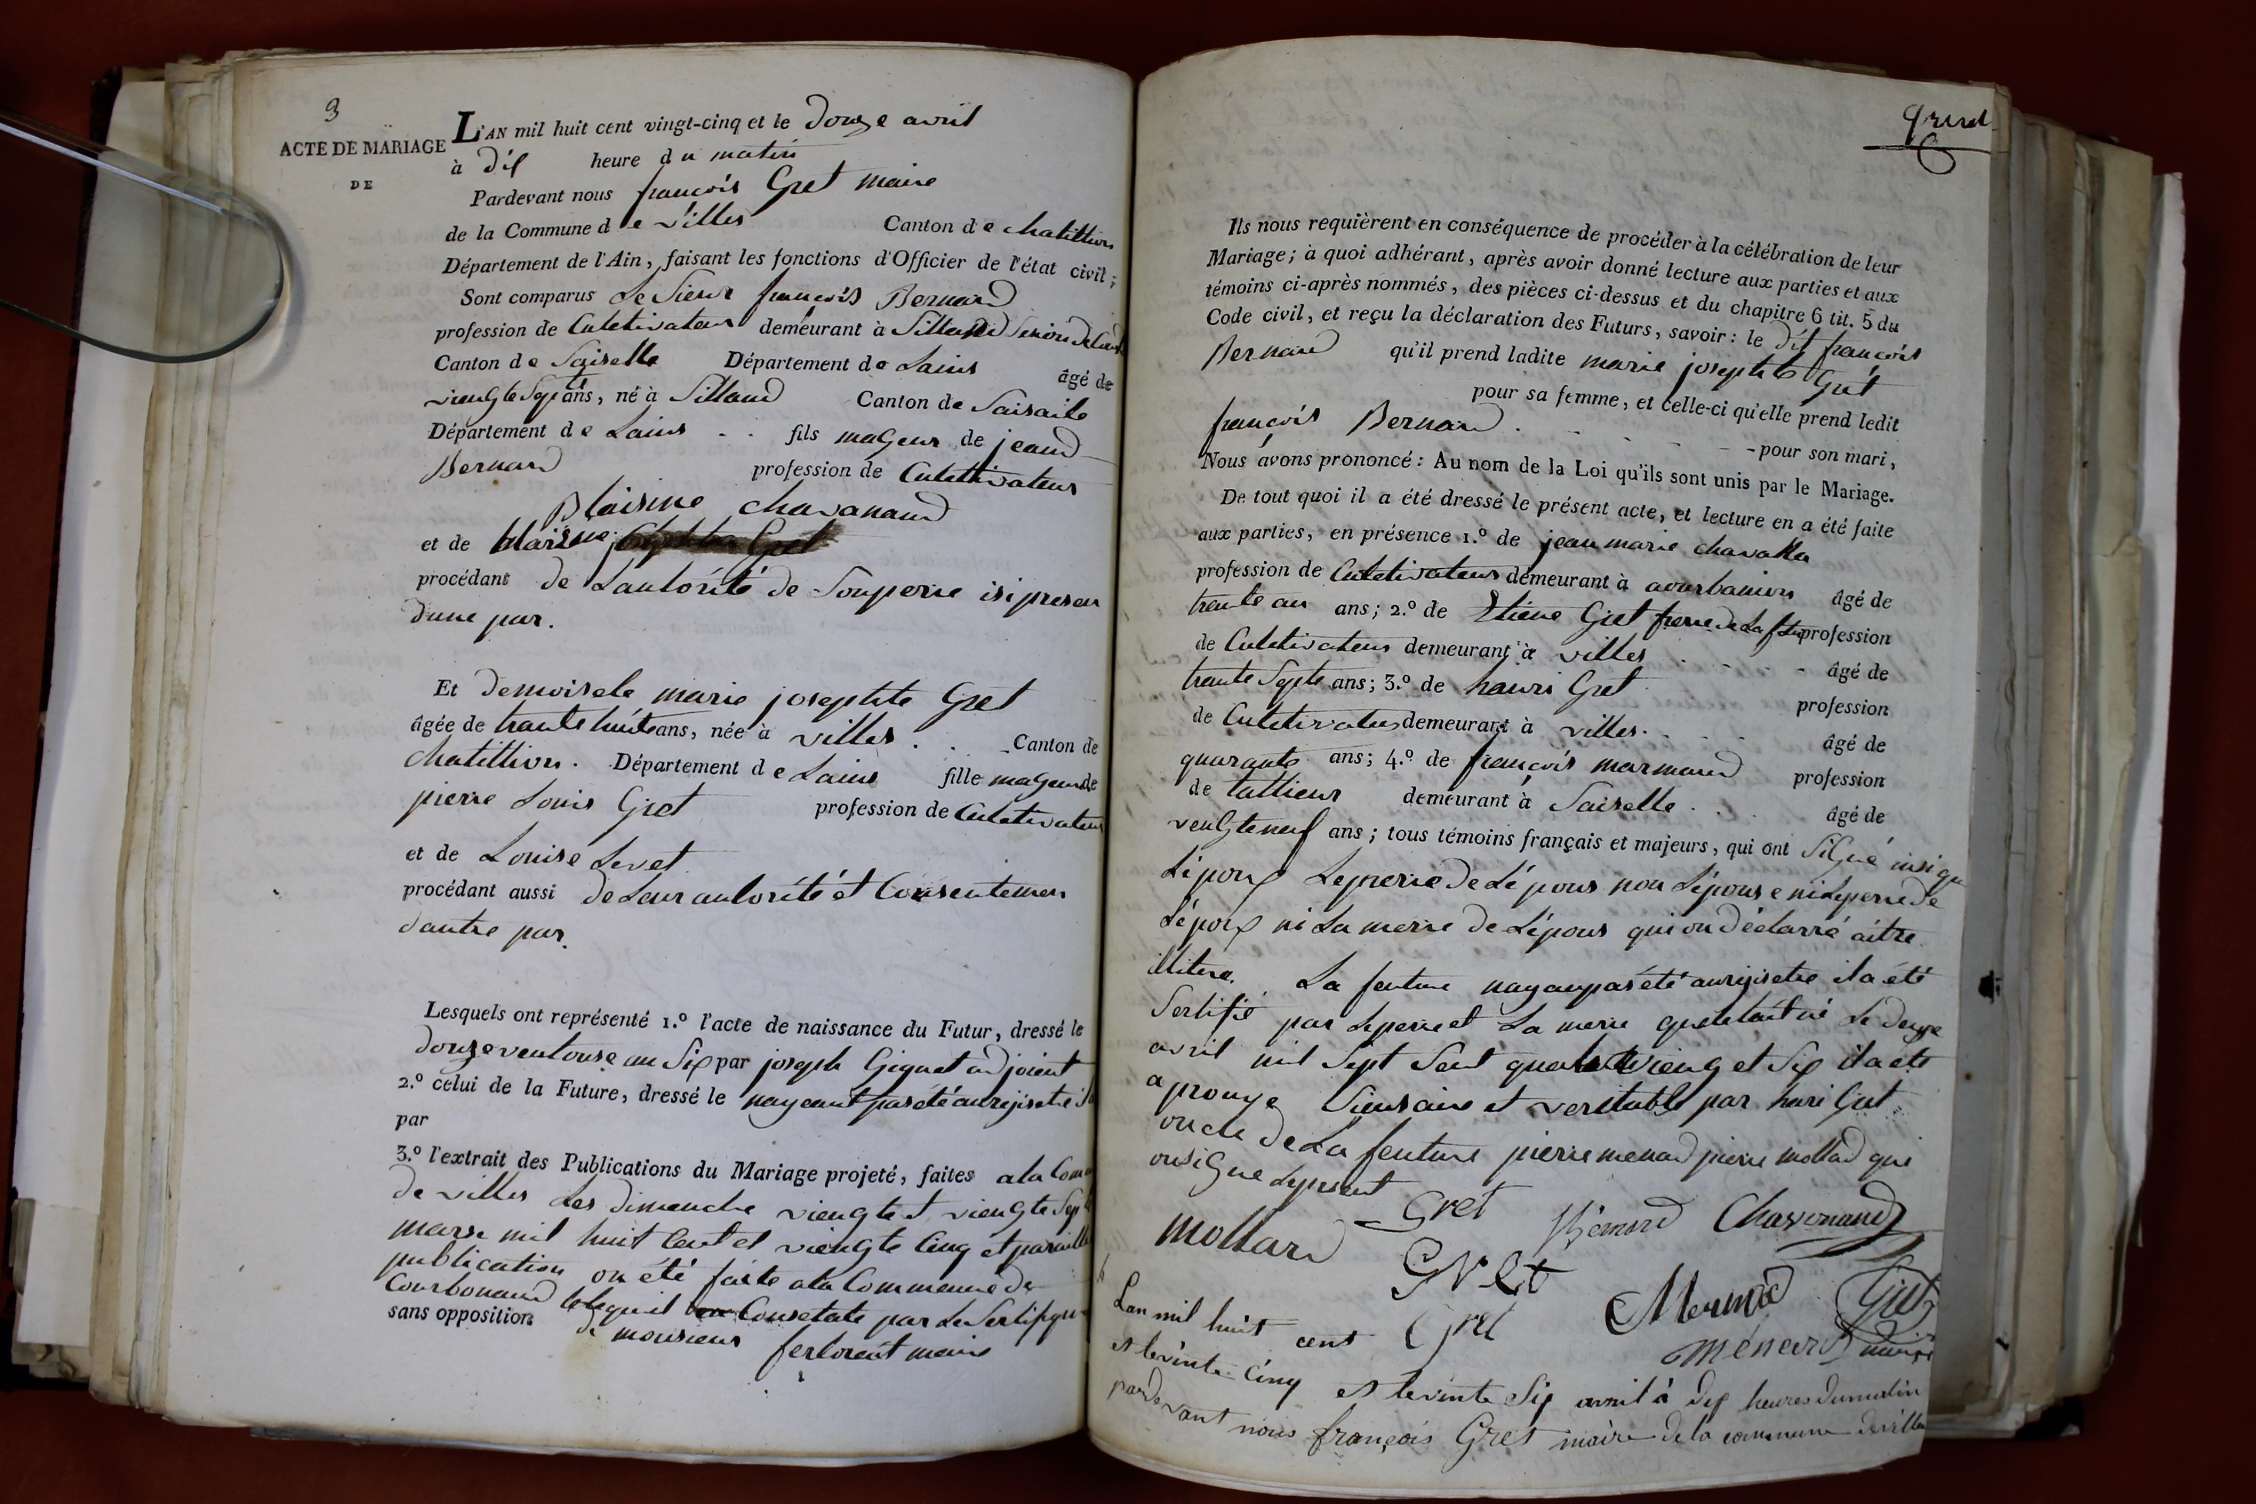 3
ACTE DE MARIAGE
DE
L'AN mil huit cent vingt-cinq et le douze avril
à dix heure du matin
Pardevant nous françois Gret maire
de la Commune de villes Canton de chatillion
Département de l'Ain, faisant les fonctions d'Officier de l'état civil;
Sont comparus Le Sieur françois Bernard
profession de Culetivateur demeurant à Sillans
Canton de Saiselle Département de Lains âgé de
viengte Septe ans, né à Silland Canton de Saisaile
Département de Lains . . fils mageur de jeand
Bernard profession de Culettivateur
Blaisine chavanand
et de blaisine
procédant de Lautórité de Sonperre isi presen
dune par.
Et demoisele marie josephte Gret
âgée de trante huite ans, née à villes . . Canton de
chatillion. Département de Lains fille mageur de
pierre Louis Gret profession de Culetivateur
et de Louise Levet
procédant aussi de Leur autorité et Consentemen
dautre par.
Lesquels ont représenté 1.º l'acte de naissance du Futur, dressé le
douze ventouse an Six par joseph Gignet adjoient
2.º celui de la Future, dressé le nayeant pas été anrejistré
par
3.º l'extrait des Publications du Mariage projeté, faites a la Com
de villes Les dimenche viengte et viengte Sept
marse mil huit Cent et viengte Cinq et paraille
publication on été faite ala Commenne de
Courbonaud lequil Consetate par Le Sertifique
sans opposition de monsieur ferloreut maire
Gret
Ils nous requièrent en conséquence de procéder à la célébration de leur
Mariage; à quoi adhérant, après avoir donné lecture aux parties et aux
témoins ci-après nommés, des pièces ci-dessus et du chapitre 6 tit. 5 du
Code civil, et reçu la déclaration des Futurs, savoir: le dit françois
Bernard qu'il prend ladite marie josephte Gret
pour sa femme, et celle-ci qu'elle prend ledit
françois Bernard . - - - - pour son mari,
Nous avons prononcé: Au nom de la Loi qu'ils sont unis par le Mariage.
De tout quoi il a été dressé le présent acte, et lecture en a été faite
aux parties, en présence 1.º de jean marie
profession de Culetivateur demeurant à âgé de
trente an ans; 2.º de Etiene Gret frerre de La profession
de Culetivateur demeurant à villes . - - - âgé de
trante Septe ans; 3.º de hanri Gret profession
de Culetivateur demeurant à villes. . . . âgé de
quarante ans; 4.º de françois marmand profession
de tallieur demeurant à Saiselle . . âgé de
vengte neuf ans; tous témoins français et majeurs, qui ont Signé insi que
Lépoux Leperre de Lépous non Lépouse ni Leperre de
Lépoux ni La merre de Lépous qui on déclarré aître
illitere. La feuture nayanpas été anrejistré il a été
Sertifié par Leperre et La merre quelleétait né Le douze
avril mil Sept Sent quatre vieng et Six il a été
aprouve Sinsaire et veritable par hari Gret
oncle de La feuture pierre menard pierre mollard qui
onsigné Lepresent
mollard Gret Bernard Chavanand
Gret
Gret Mermod Gret
ménard maire
Lan mil huit cent
et le vinte cinq et le vinte Six avril à dix heures du matin
pardevant nous françois Gret maire de la commune de villes